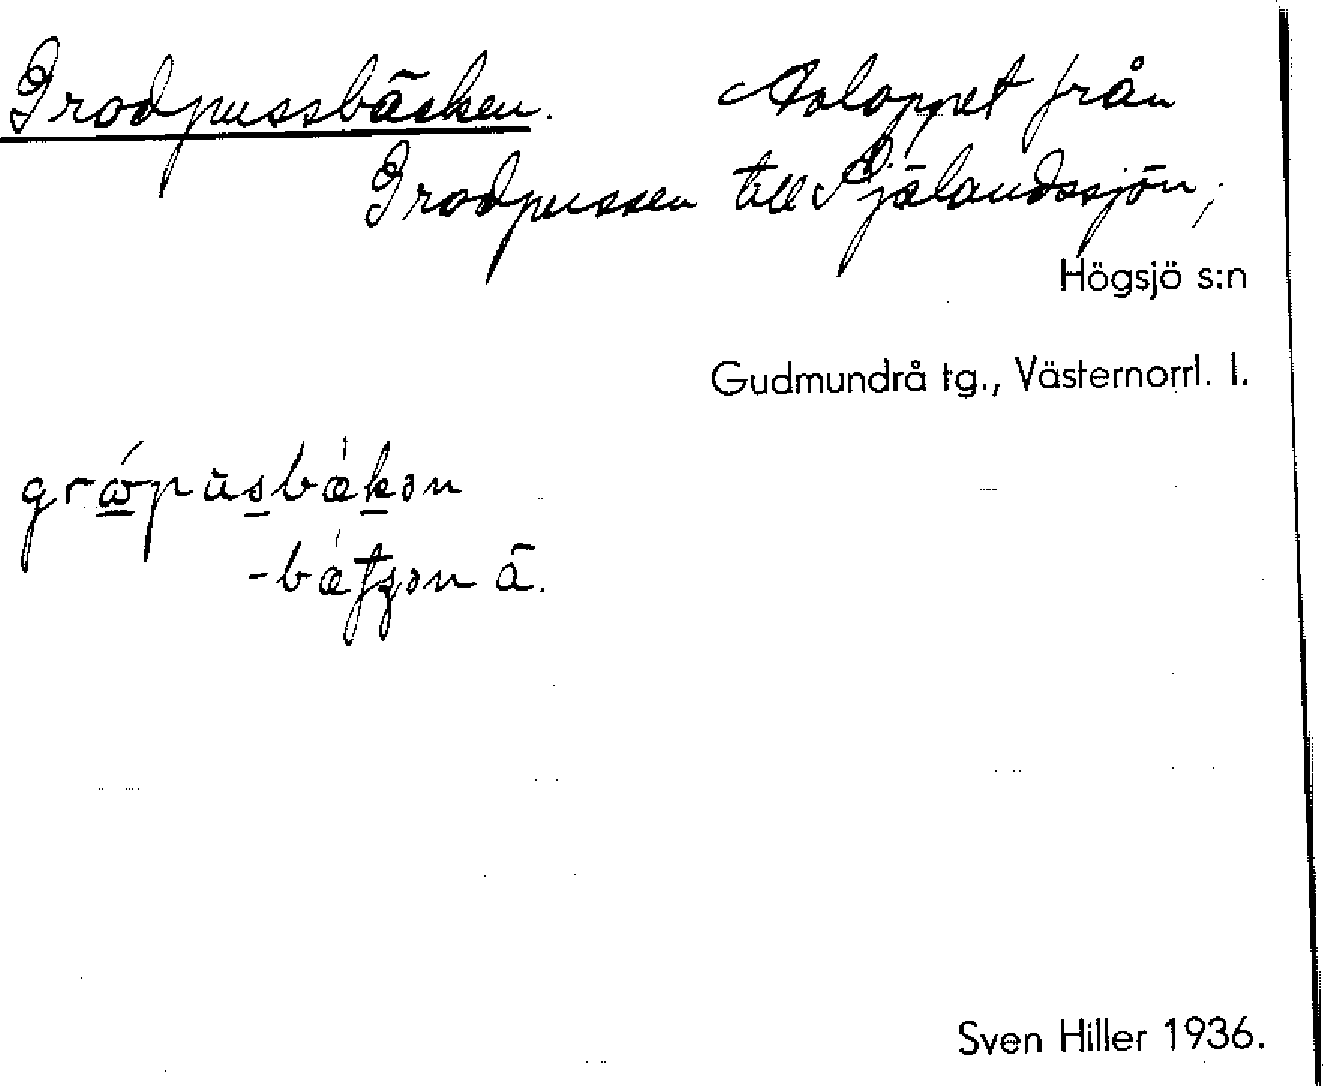 Grodpussbäcken. Avloppet från
Grodpussen till Själandssjön,
Högsjö s:n
Gudmundrå tg., Västernorrl. l.
-bæ̀tʃən ä.
Sven Hiller 1936.